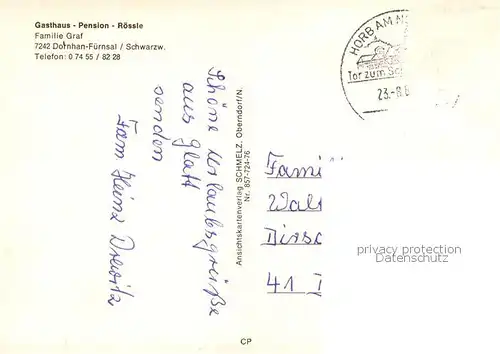 Gasthaus - Pension - Rössle
Familie Graf
7242 Dornhan-Fürnsal / Schwarzw.
Telefon: 0 74 55 / 82 28
HORB AM N
Tor zum Sc
23.-8.8
Schöne Urlaubsgrüße
aus Glatt
senden
Fam. Heinz Drewitz
Ansichtskartenverlag SCHMELZ, Oberndorf/N.
Nr. 857-724-76
Fami
Walt
Dissc
41
privacy protection
CP